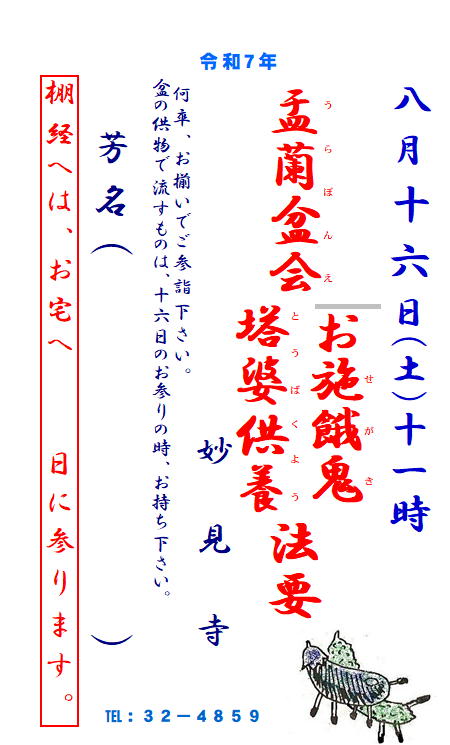 令和7年
八月十六日(土)十一時
盂蘭盆会
うらぼんえ
お施餓鬼
せがき
塔婆供養
とうばくよう
法要
何卒、お揃いでご参詣下さい。
盆の供物で流すものは、十六日のお参りの時、お持ち下さい。
妙見寺
芳名( )
棚経へは、お宅へ 日に参ります。
TEL:32-4859